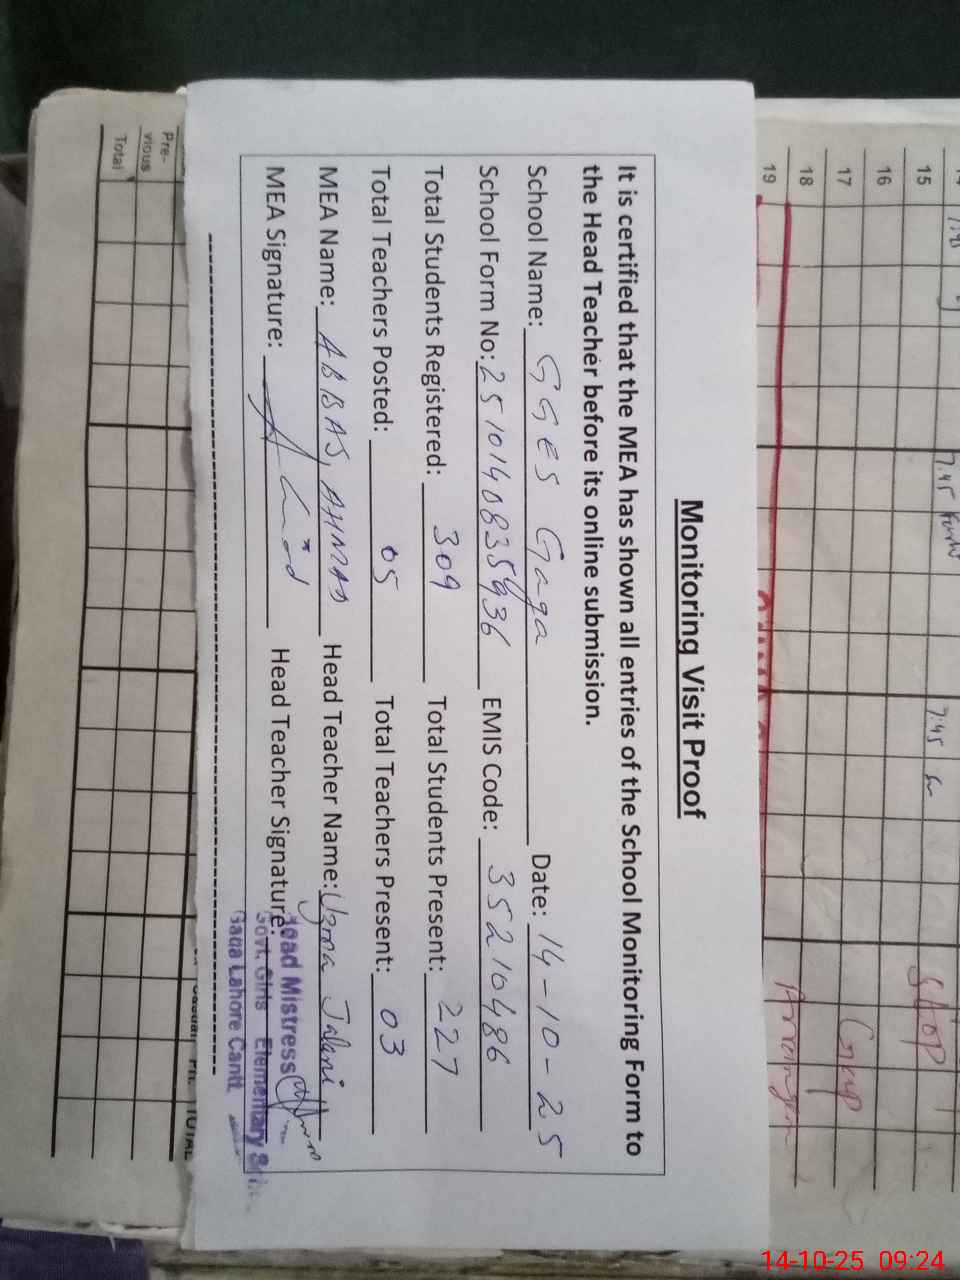 Monitoring Visit Proof
It is certified that the MEA has shown all entries of the School Monitoring Form to
the Head Teacher before its online submission.
School Name: GGES Gaga Date: 14-10-25
School Form No: 2510140835936 EMIS Code: 35210486
Total Students Registered: 309 Total Students Present: 227
Total Teachers Posted: 05 Total Teachers Present: 03
MEA Name: ABBAS, AHMAD Head Teacher Name: Uzma
MEA Signature: Head Teacher Signature:
Head Mistress
Govt. Girls Elementary
Gaga Lahore Cantt.
15
16
17
18
19
7:45
7:45
Stop
Group
Pre-
vious
Total
TOTAL
14-10-25 09:24